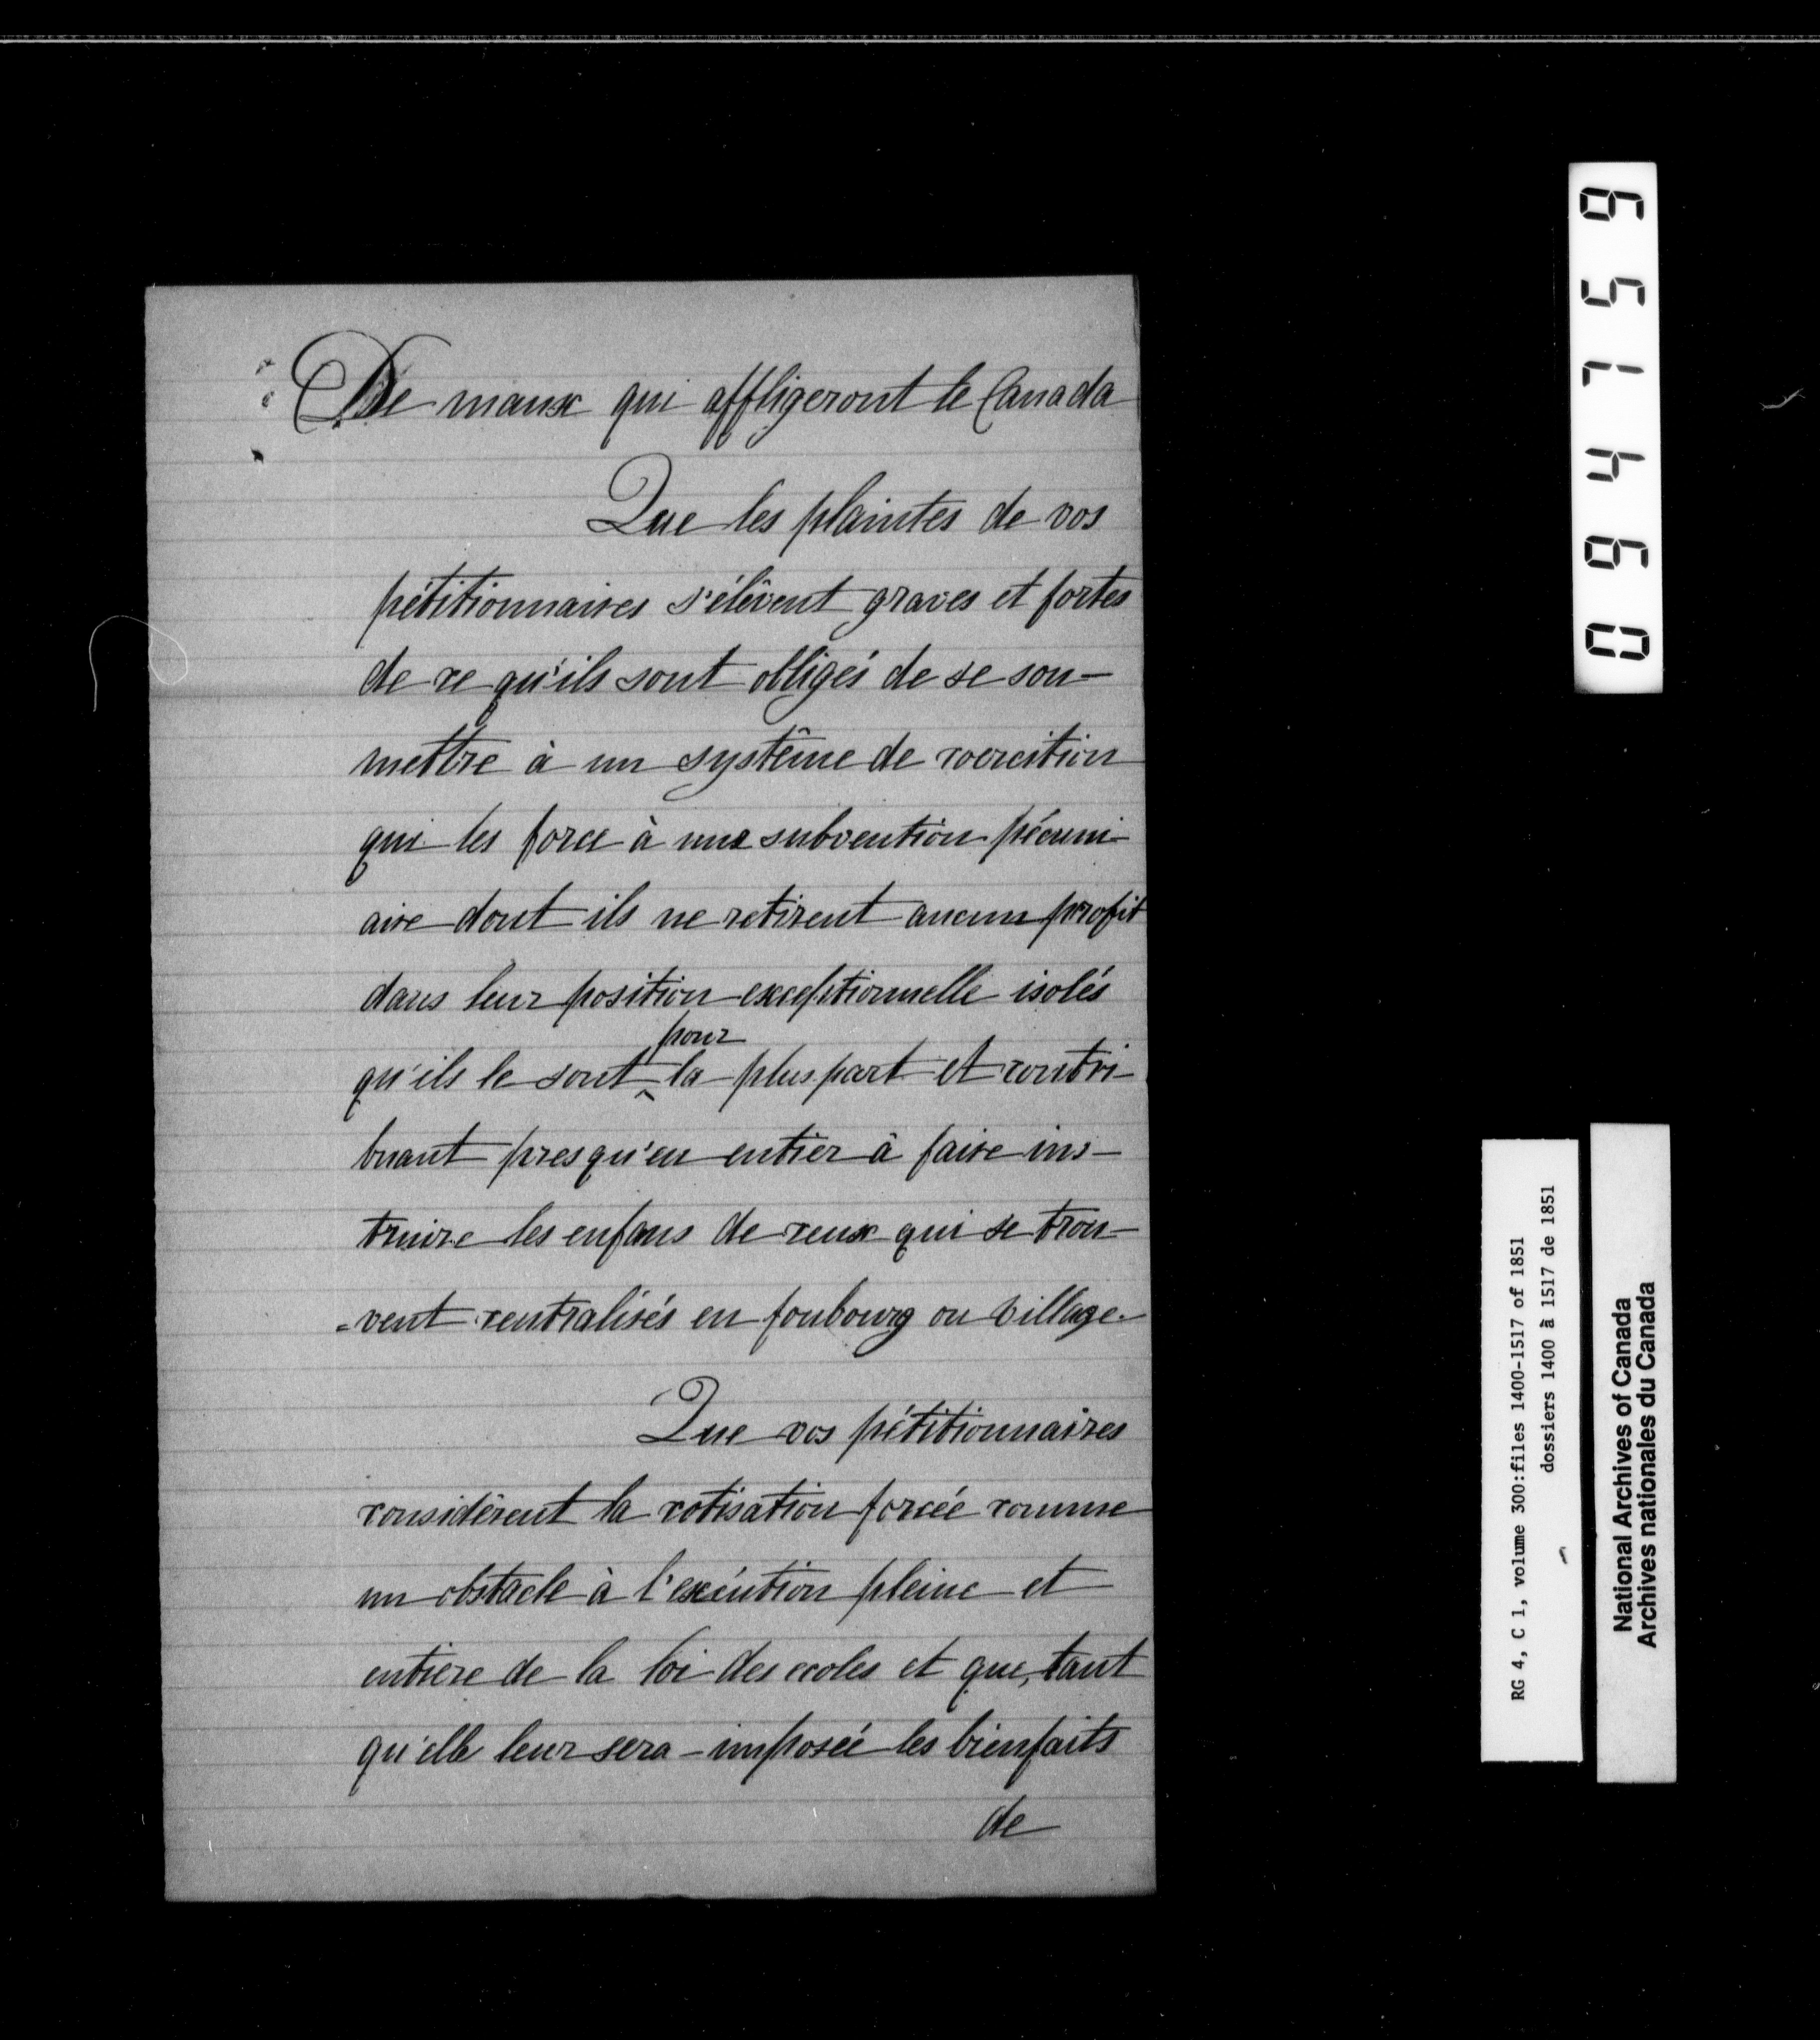 De maux qui affligeront le Canada
Que les plaintes de vos
pétitionnaires s'élèvent graves et fortes
de ce qu'ils sont obligés de se sou-
mettre à un système de coercition
qui les force à une subvention pécuni-
aire dont ils ne retirent aucun profit
dans leur position exceptionnelle isolés
pour
qu'ils le sont ‸ la plus part et contri-
buant presqu'en entier à faire ins-
truire les enfans de ceux qui se trou-
=vent centralisés en foubourg ou village.
Que vos pétitionnaires
considèrent la cotisation forcée comme
un obstacle à l'exécution pleine et
entière de la loi des ecoles et que, tant
qu'elle leur sera imposée les bienfaits
de
094759
RG 4, C 1, volume 300:files 1400-1517 of 1851
dossiers 1400 à 1517 de 1851
National Archives of Canada
Archives nationales du Canada